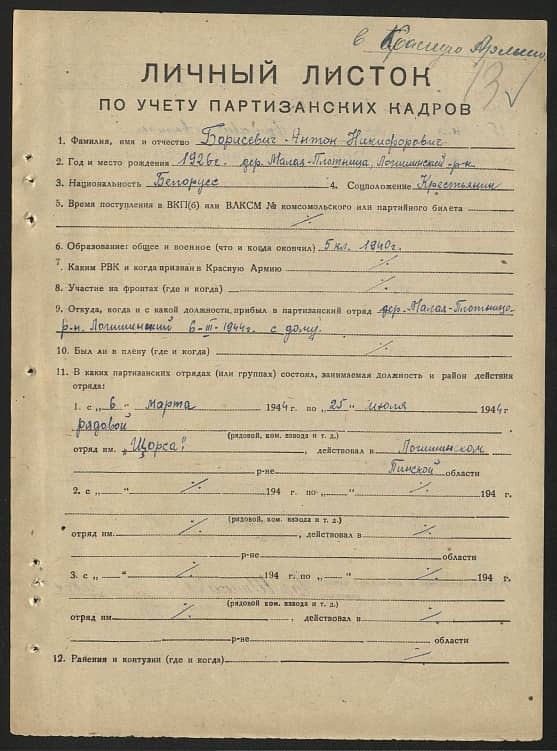 в Красную Армию
13
ЛИЧНЫЙ ЛИСТОК
ПО УЧЕТУ ПАРТИЗАНСКИХ КАДРОВ
1. Фамилия, имя и отчество Борисевич Антон Никифорович
2. Год и место рождения 1926г. дер. Малая-Плотница, Логишинский р-н
3. Национальность Белорусс 4. Соцположение Крестьянин
5. Время поступления в ВКП(б) или ВЛКСМ № комсомольского или партийного билета
-/.
6. Образование: общее и военное (что и когда окончил) 5 кл. 1940г.
7. Каким РВК и когда призван в Красную Армию -/.
8. Участие на фронтах (где и когда) -/.
9. Откуда, когда и с какой должности прибыл в партизанский отряд дер. Малая-Плотница
р-н. Логишинский 6-III-1944г. с дому.
10. Был ли в плену (где и когда) -/.
11. В каких партизанских отрядах (или группах) состоял, занимаемая должность и район действия
отряда:
1. с „ 6 " марта 1944 г. по „ 25 " июля 1944 г.
рядовой
(рядовой, ком. взвода и т. д.)
отряд им. „Щорса", действовал в Логишинском
р-не Пинской области
2. с „ " -/. 194 г. по „ " -/. 194 г.
(рядовой, ком. взвода и т. д.)
отряд им. -/. , действовал в -/.
р-не области
3. с „ " -/. 194 г. по „ " -/. 194 г.
(рядовой, ком. взвода и т. д.)
отряд им -/. , действовал в -/.
р-не области
12. Ранения и контузии (где и когда) -/.